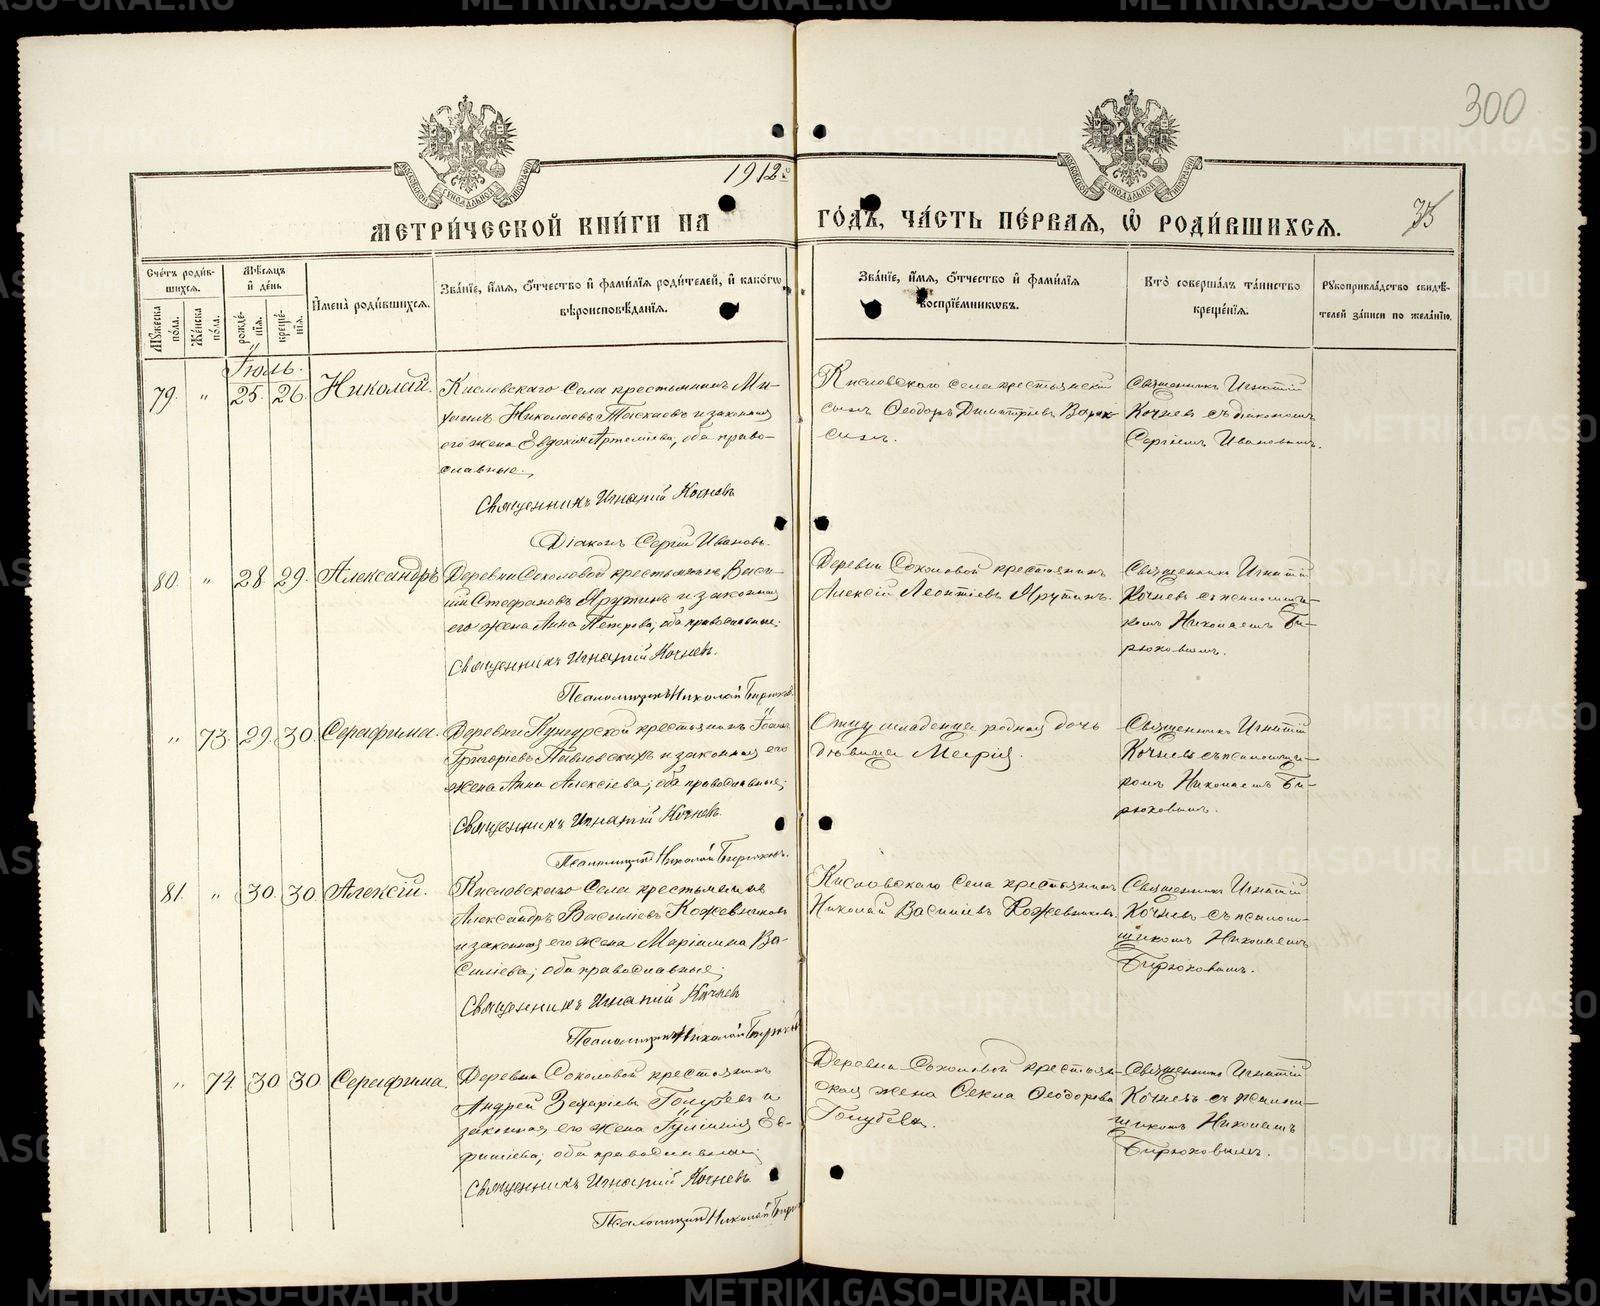 300
1912 г
МЕТРИ́ЧЕСКОЙ КНИ́ГИ НА ГО́ДЪ, ЧА́СТЬ ПЕ́РВАЯ, Ѡ҆ РОДИ́ВШИХСЯ.
35
Сче́тъ роди́в-
шихся.
Мѣ́сяцъ
и҆ де́нь
И҆мена̀ роди́вшихся.
Зва́нїе, и҆́мя, ѻ҆́тчество и҆ фами́лїя роди́телей, и҆ како́гѡ
вѣроисповѣ́данїя.
Зва́нїе, и҆́мя, ѻ҆́тчество и҆ фами́лїя
воспрїе́мниковъ.
Кто̀ соверша́лъ та́инство
креще́нїя.
Рꙋкоприкла́дство свидѣ́-
телей за́писи по жела́нїю.
Мꙋ́жеска
по́ла.
Же́нска
по́ла.
рожде́-
нїя.
креще́-
нїя.
Іюль.
79. " 25. 26. Николай.
Кисловскаго Села крестьянинъ Ми-
хаилъ Николаевъ Таскаевъ и законная
его жена Евдокия Артемiева, оба право-
славные.
Священникъ Игнатій Кочневъ
Діаконъ Сергій Ивановъ.
Кисловскаго села крестьянскій
сынъ Ѳеодоръ Димитріевъ
Священникъ Игнатій
Кочневъ съ діакономъ
Сергіемъ Ивановымъ.
80. " 28 29. Александръ
Деревни Соколовой крестьянинъ Васи-
лій Стефановъ Ярутинъ и законная
его жена Анна Петрова, оба православные.
Священникъ Игнатій Кочневъ.
Псаломщикъ Николай Бирюковъ.
Деревни Соколовой крестьянинъ
Алексій Леонтіевъ Ярутинъ.
Священникъ Игнатій
Кочневъ съ псаломщи-
комъ Николаемъ Би-
рюковымъ.
" 73. 29. 30. Серафима.
Деревни Кунгурской крестьянинъ Іоаннъ
Григоріевъ Павловскихъ и законная его
жена Анна Алексіева; оба православные;
Священникъ Игнатій Кочневъ.
Псаломщикъ Николай Бирюковъ.
Отцу младенца родная дочь
дѣвица Марія.
Священникъ Игнатій
Кочневъ съ псаломщи-
комъ Николаемъ Би-
рюковымъ.
81. " 30. 30. Алексій.
Кисловскаго Села крестьянинъ
Александръ Василіевъ Кожевниковъ
и законная его жена Маріамна Ва-
силіева; оба православные;
Священникъ Игнатій Кочневъ
Псаломщикъ Николай Бирюковъ
Кисловскаго Села крестьянинъ
Николай Василіевъ Кожевниковъ.
Священникъ Игнатій
Кочневъ съ псалом-
щикомъ Николаемъ
Бирюковымъ.
" 74 30 30 Серафима.
Деревни Соколовой крестьянинъ
Андрей Захаріевъ Голубевъ и
законная его жена Іуліанія Ев-
фиміева; оба православные;
Священникъ Игнатій Кочневъ.
Псаломщикъ Николай Бирюк
Деревни Соколовой крестьян-
ская жена Ѳекла Ѳеодорова
Голубева.
Священникъ Игнатій
Кочневъ съ псалом-
щикомъ Николаемъ
Бирюковымъ.
METRIKI.GASO-URAL.RU